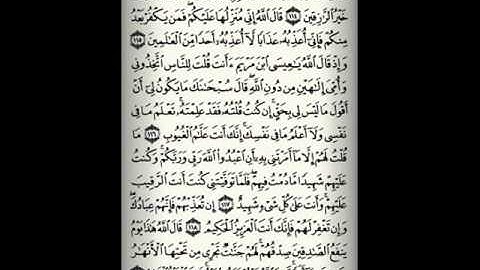 خَيْرُ الرَّازِقِينَ ﴿١١٤﴾ قَالَ اللَّهُ إِنِّي مُنَزِّلُهَا عَلَيْكُمْ ۖ فَمَن يَكْفُرْ بَعْدُ
مِنكُمْ فَإِنِّي أُعَذِّبُهُ عَذَابًا لَّا أُعَذِّبُهُ أَحَدًا مِّنَ الْعَالَمِينَ ﴿١١٥﴾
وَإِذْ قَالَ اللَّهُ يَا عِيسَى ابْنَ مَرْيَمَ ءَأَنتَ قُلْتَ لِلنَّاسِ اتَّخِذُونِي
وَأُمِّيَ إِلَٰهَيْنِ مِن دُونِ اللَّهِ ۖ قَالَ سُبْحَانَكَ مَا يَكُونُ لِي أَنْ
أَقُولَ مَا لَيْسَ لِي بِحَقٍّ ۚ إِن كُنتُ قُلْتُهُ فَقَدْ عَلِمْتَهُ ۚ تَعْلَمُ مَا فِي
نَفْسِي وَلَا أَعْلَمُ مَا فِي نَفْسِكَ ۚ إِنَّكَ أَنتَ عَلَّامُ الْغُيُوبِ ﴿١١٦﴾ مَا
قُلْتُ لَهُمْ إِلَّا مَا أَمَرْتَنِي بِهِ أَنِ اعْبُدُوا اللَّهَ رَبِّي وَرَبَّكُمْ ۚ وَكُنتُ
عَلَيْهِمْ شَهِيدًا مَّا دُمْتُ فِيهِمْ ۖ فَلَمَّا تَوَفَّيْتَنِي كُنتَ أَنتَ الرَّقِيبَ
عَلَيْهِمْ ۚ وَأَنتَ عَلَىٰ كُلِّ شَيْءٍ شَهِيدٌ ﴿١١٧﴾ إِن تُعَذِّبْهُمْ فَإِنَّهُمْ عِبَادُكَ ۖ
وَإِن تَغْفِرْ لَهُمْ فَإِنَّكَ أَنتَ الْعَزِيزُ الْحَكِيمُ ﴿١١٨﴾ قَالَ اللَّهُ هَٰذَا يَوْمُ
يَنفَعُ الصَّادِقِينَ صِدْقُهُمْ ۚ لَهُمْ جَنَّاتٌ تَجْرِي مِن تَحْتِهَا الْأَنْهَارُ